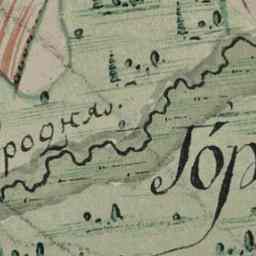 родняя.
Го́р